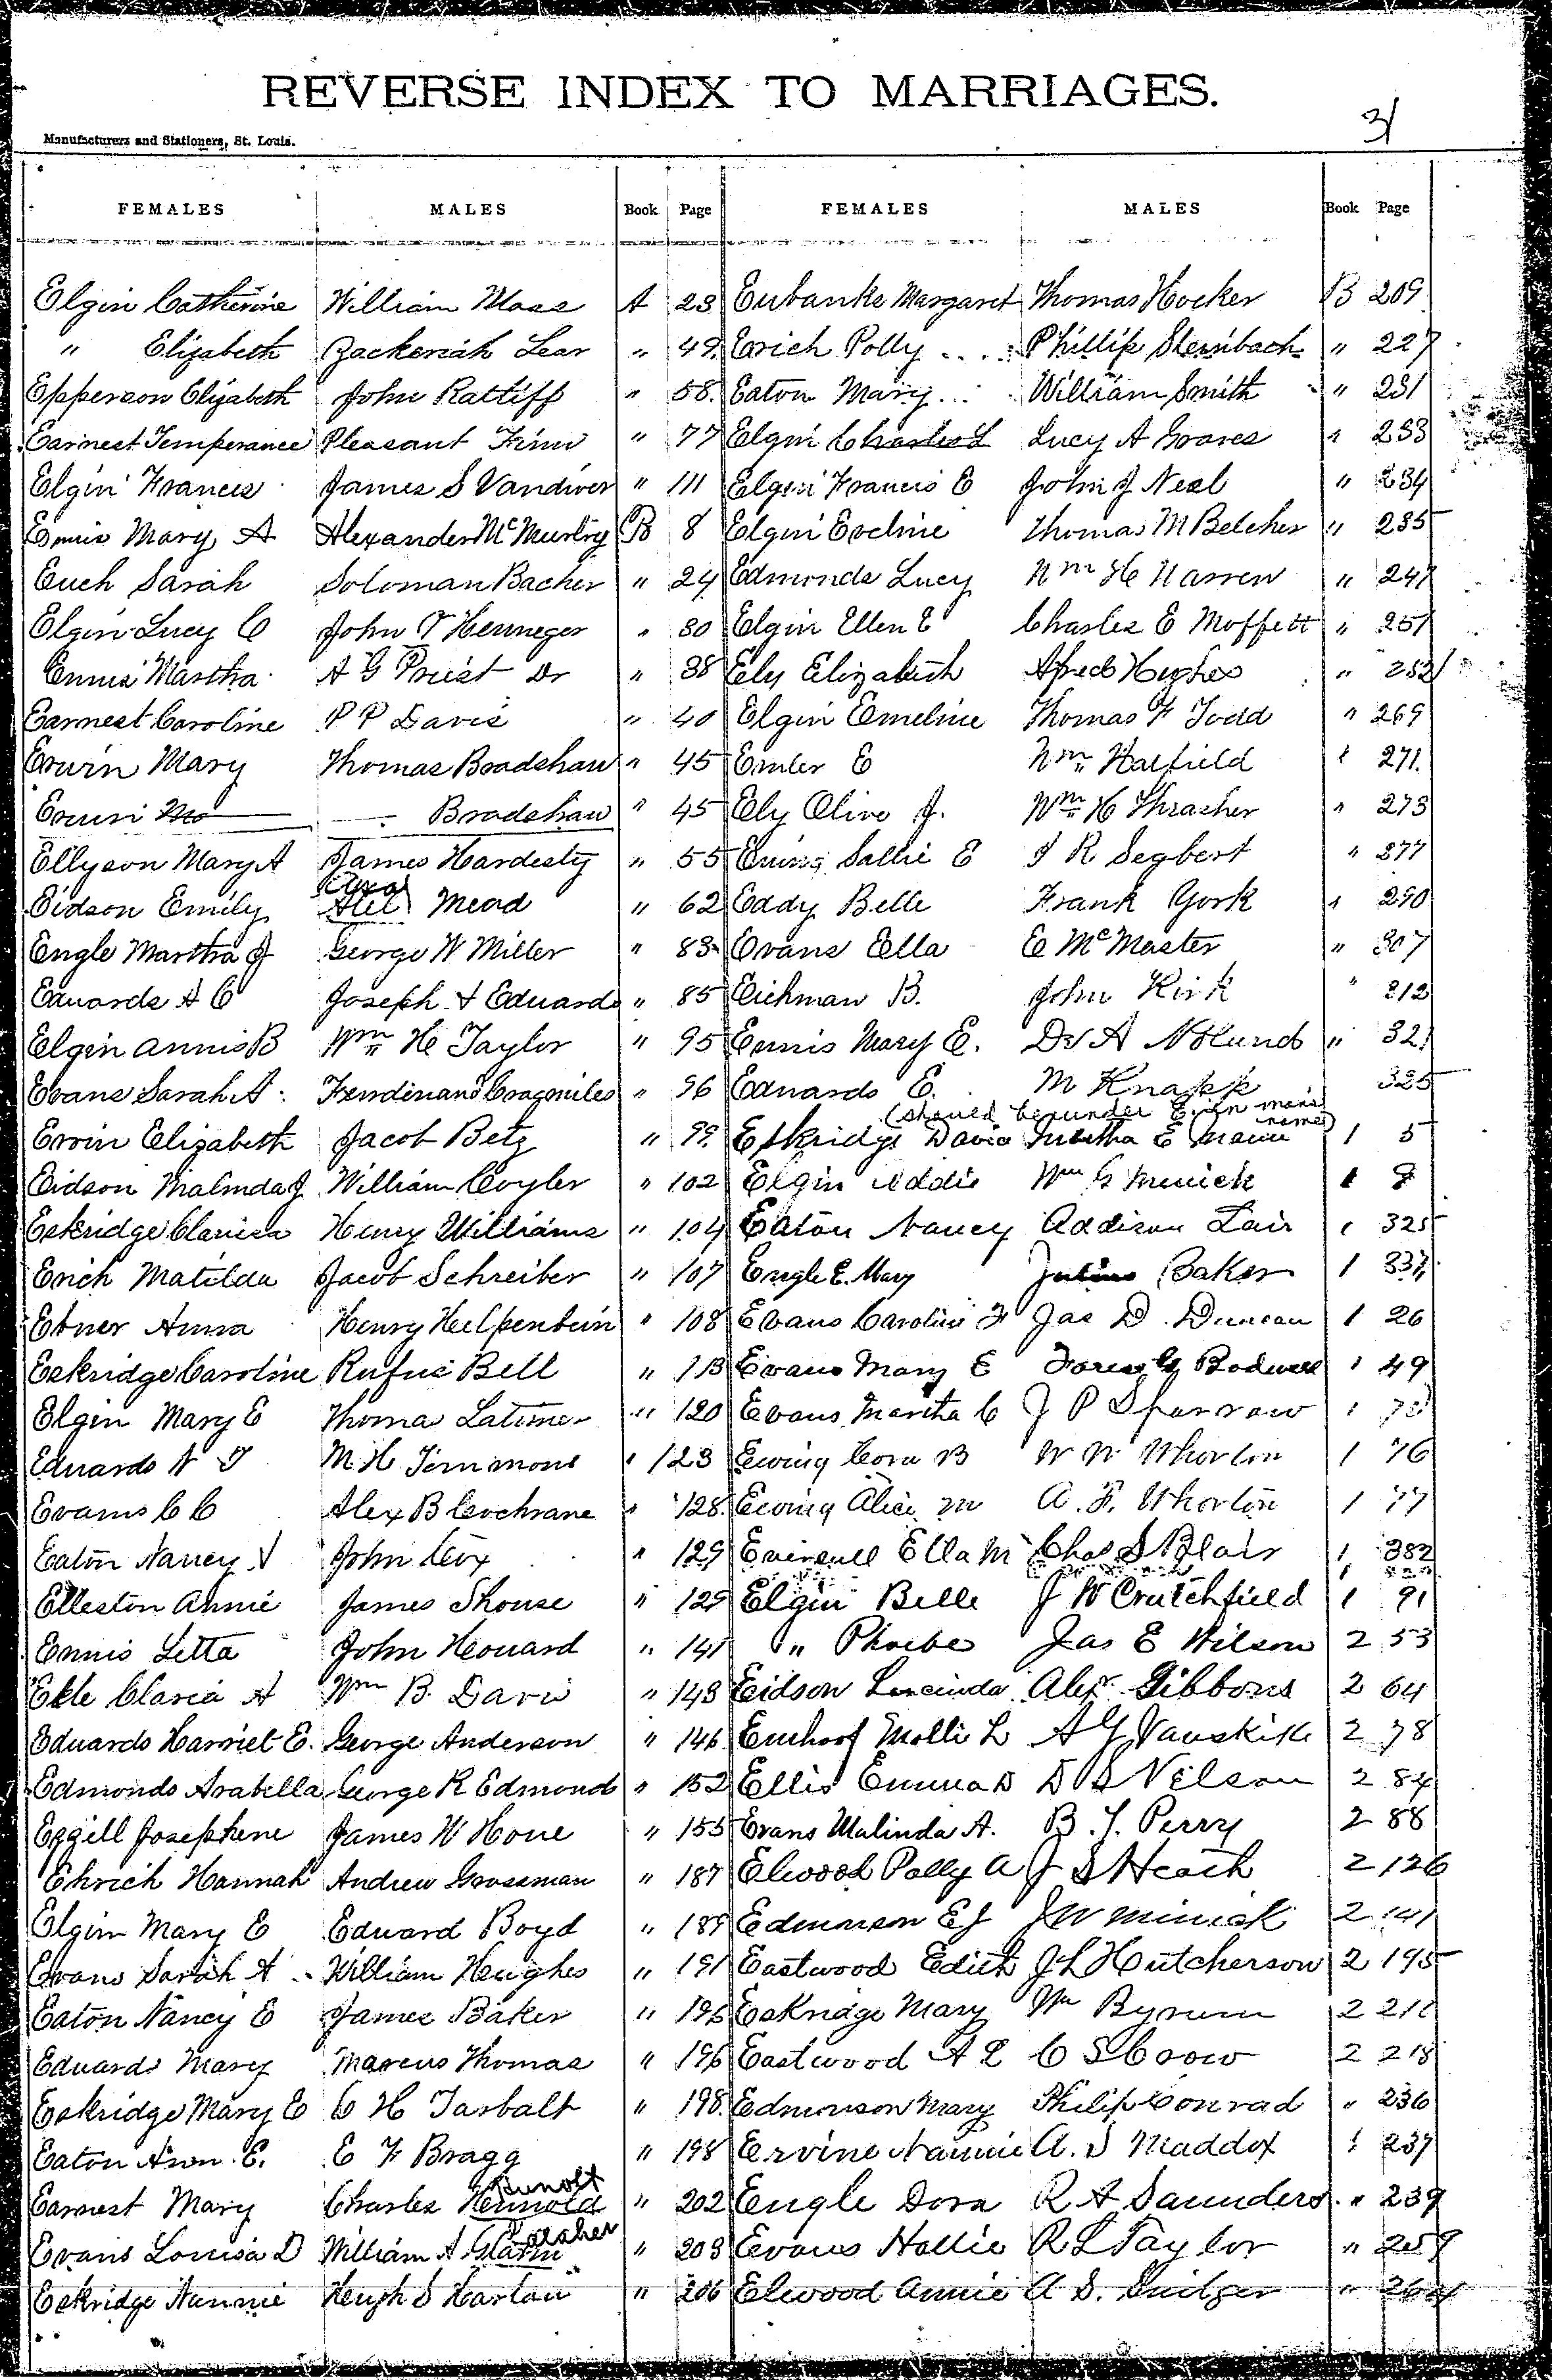 REVERSE INDEX TO MARRIAGES.
31
Manufacturers and Stationers, St. Louis.
FEMALES MALES Book Page FEMALES MALES Book Page
Elgin Catherine William Moss A 23 Eubanks Margaret Thomas Hocker B 209
" Elizabeth Zackeriah Lear " 49 Erich Polly Phillip Steinbach " 227
Epperson Elizabeth John Ratliff " 58 Eaton Mary William Smith " 231
Earnest Temperance Pleasant Finn " 77 Elgin Charles L Lucy A Graves " 233
Elgin Frances James S Vandiver " 111 Elgin Francis E John J Neal " 234
Ennis Mary A Alexander McMurtry B 8 Elgin Eveline Thomas M Belcher " 235
Euch Sarah Soloman Bacher " 24 Edmonds Lucy Wm H Warren " 247
Elgin Lucy C John T Henneger " 30 Elgin Ellen E Charles E Moffett " 251
Ennis Martha A G Priest Dr " 38 Ely Elizabeth Alfred Hughes " 252
Earnest Caroline P P Davis " 40 Elgin Emeline Thomas F Todd " 269
Erwin Mary Thomas Bradshaw " 45 Emler E Wm Hatfield " 271
Erwin Mo Bradshaw " 45 Ely Olive J. Wm H Thrasher " 273
Ellyson Mary A James Hardesty " 55 Ewing Sallie E J R Segbert " 277
Eidson Emily Mead " 62 Eddy Belle Frank York " 290
Engle Martha J George W Miller " 83 Evans Ella E McMaster " 307
Edwards A C Joseph Edwards " 85 Eichman B. John Kirk " 312
Elgin Annis B Wm H Taylor " 95 Ennis Mary E. Dr A Noland " 321
Evans Sarah A Ferdinand Cragmiles " 96 Edwards E. M Knapp 325
(should be under Even mans name)
Ervin Elizabeth Jacob Betz " 99 Eskridge David E 1 5
Eidson Malinda J William Coyler " 102 Elgin Addie Wm G 1 8
Eskridge Clarissa Henry Williams " 104 Eaton Nancy Addison Lair 1 325
Erich Matilda Jacob Schreiber " 107 Engle E. Mary Julius Baker 1 337
Ebner Anna Henry Helfenbein " 108 Evans Caroline F Jas D. Duncan 1 26
Eskridge Caroline Rufus Bell " 113 Evans Mary E Bodwell 1 49
Elgin Mary E Thomas Latimer " 120 Evans Martha C J P Sparrow 1 73
Edwards N F M H Timmons " 123 Ewing Cora B W W Whorton 1 76
Evans C C Alex B Cochrane " 128 Ewing Alice M A. F. Whorton 1 77
Eaton Nancy V John Cox " 129 Eversull Ella M Chas S Blair 1 382
Elleston Annie James Shouse " 129 Elgin Belle J W Crutchfield 1 91
Ennis Letta John Howard " 141 " Phoebe Jas E Wilson 2 53
Ekle Claria A Wm B. Davis " 143 Eidson Lucinda Alex. Gibbons 2 64
Edwards Harriet E. George Anderson " 146 Emhoof Mollie L A G Vanskike 2 78
Edmonds Arabella George R Edmonds " 152 Ellis Emma D D S Nelson 2 84
Ezgill Josephene James W Howe " 155 Evans Malinda A. B. J. Perry 2 88
Ehrich Hannah Andrew Grossman " 187 Elwood Polly A J S Heath 2 126
Elgin Mary E Edward Boyd " 189 Edmunson E J J W Minick 2 141
Evans Sarah A William Hughes " 191 Eastwood Edith J L Hutcherson 2 195
Eaton Nancy E James Baker " 196 Eskridge Mary Wm Bynum 2 211
Edwards Mary Marcus Thomas " 196 Eastwood A L C S Crow 2 218
Eskridge Mary E C H Tarbalt " 198 Edmonson Mary Philip Conrad " 236
Eaton Ann E. E F Bragg " 198 Ervine Nannie A. S Maddox " 237
Kunolt
Earnest Mary Charles Hernold " 202 Engle Dora R A Saunders " 239
Evans Louisa D William A " 203 Evans Hallie R L Taylor " 259
Eskridge Nannie Hugh S Harlan " 206 Elwood Annie A S. Snidger " 264